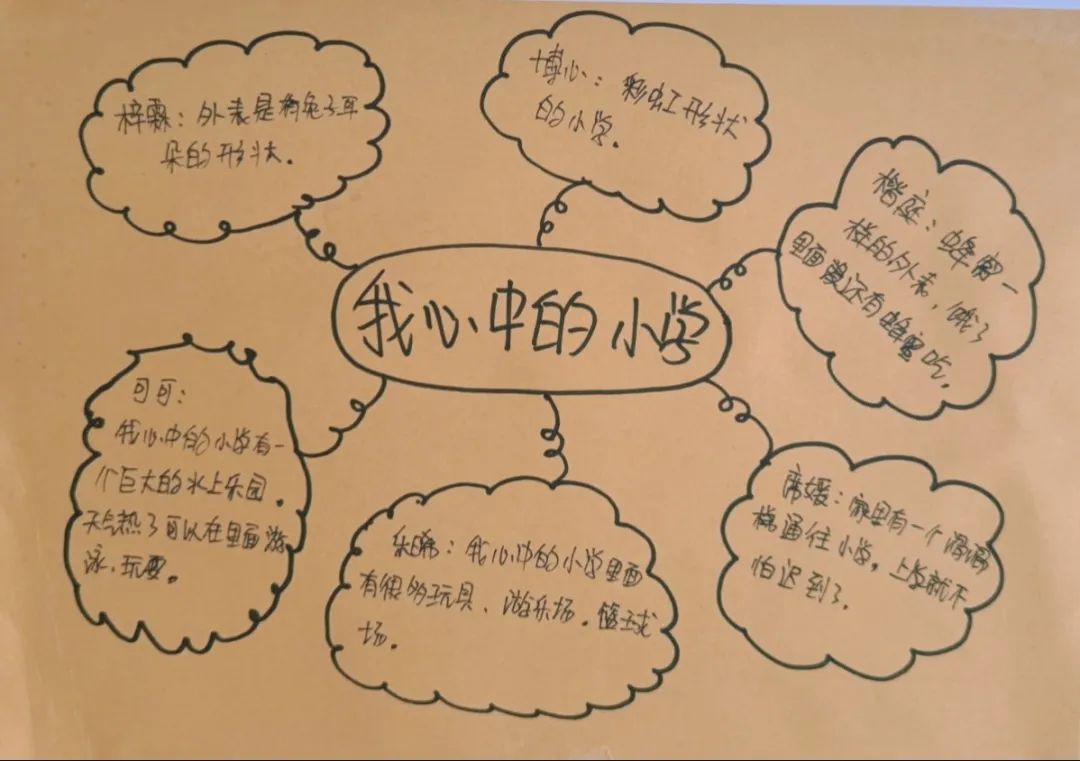 梓霖：外表是狗兔子耳
朵的形状。
博心：彩虹形状
的小学。
楷庭：蜂窝一
样的外表，饿了
里面还有蜂蜜吃。
我心中的小学
可可：
我心中的小学有一
个巨大的水上乐园。
天气热了可以在里面游
泳、玩耍。
乐曦：我心中的小学里面
有很多玩具、游乐场。篮球
场。
媛：家里有一个滑滑
梯通往小学，上学就不
怕迟到了。